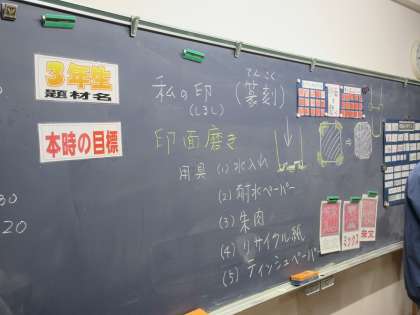 3年生
題材名
私の印
(しるし)
(篆刻)
てんこく
本時の目標
印面磨き
用具 (1) 水入れ
(2) 耐水ペーパー
(3) 朱肉
(4) リサイクル紙
(5) ティッシュペーパー
30
20
ミックス
朱文